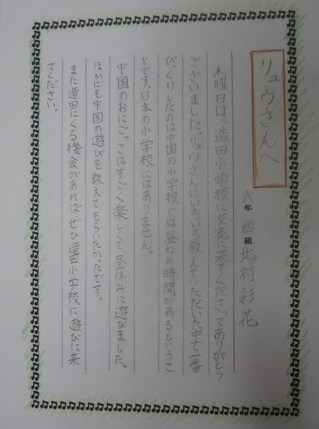 リュウさんへ
六年 四組 北村彩花
木曜日は、造田小学校に交流に来てくださってありがとう
ございました。リュウさんにいろいろ教えていただいた中で一番
びっくりしたのは中国の小学校では昼ねの時間があるというこ
とです。日本の小学校にはありません。
中国のおにごっこはすごく楽しくて、昼休みに遊びました。
ほかにも中国の遊びを教えてもらいたかったです。
また造田にくる機会があれば、ぜひ造田小学校に遊びに来
てください。